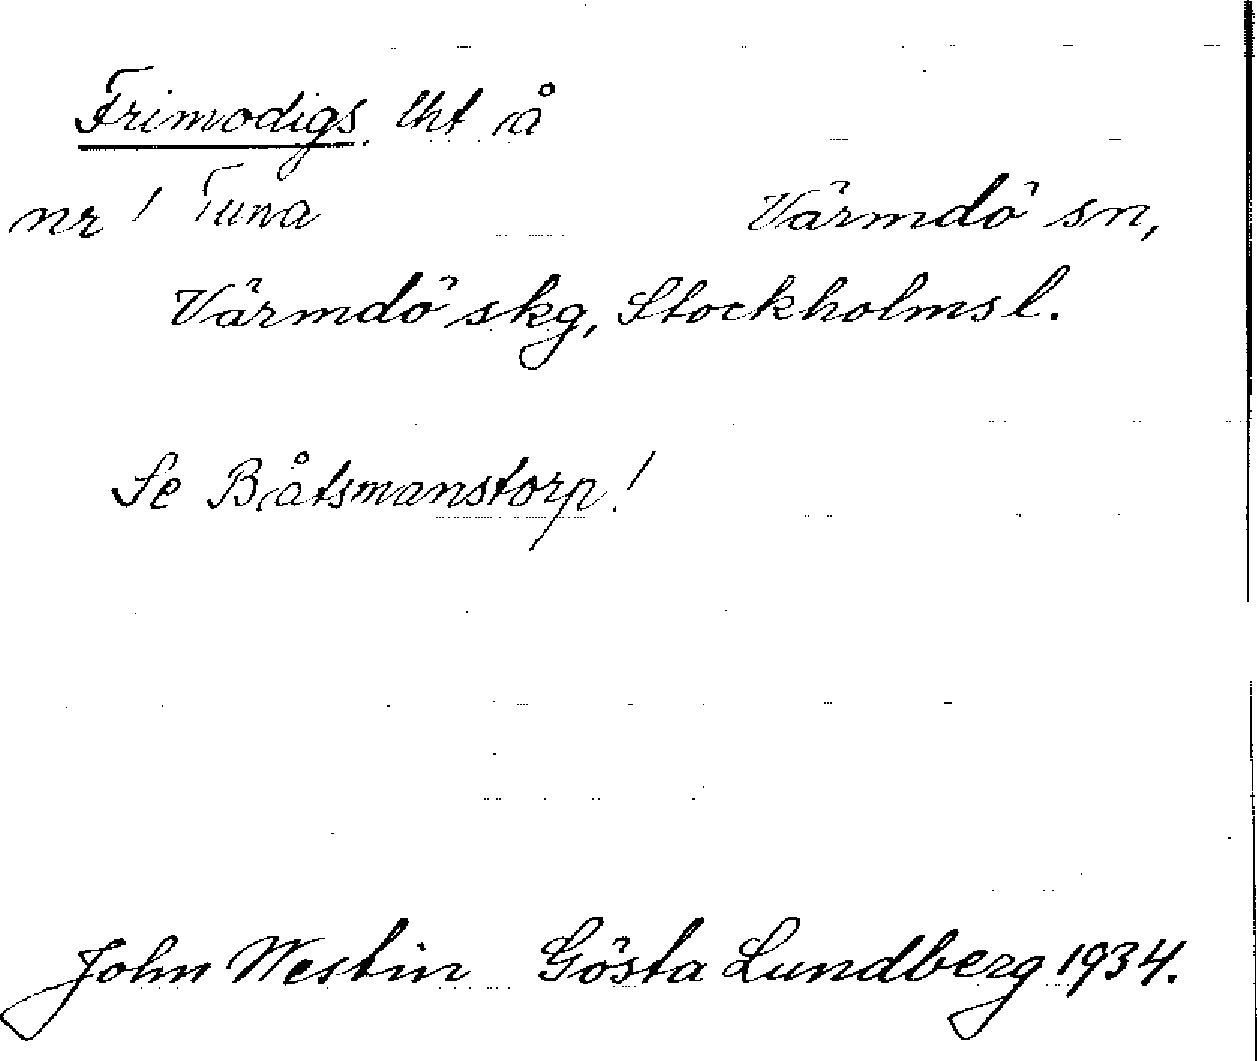 Frimodigs lht å
nr 1 Tuna Värmdö sn,
Värmdö skg, Stockholms l.
Se Båtsmanstorp!
John Westin Gösta Lundberg 1934.